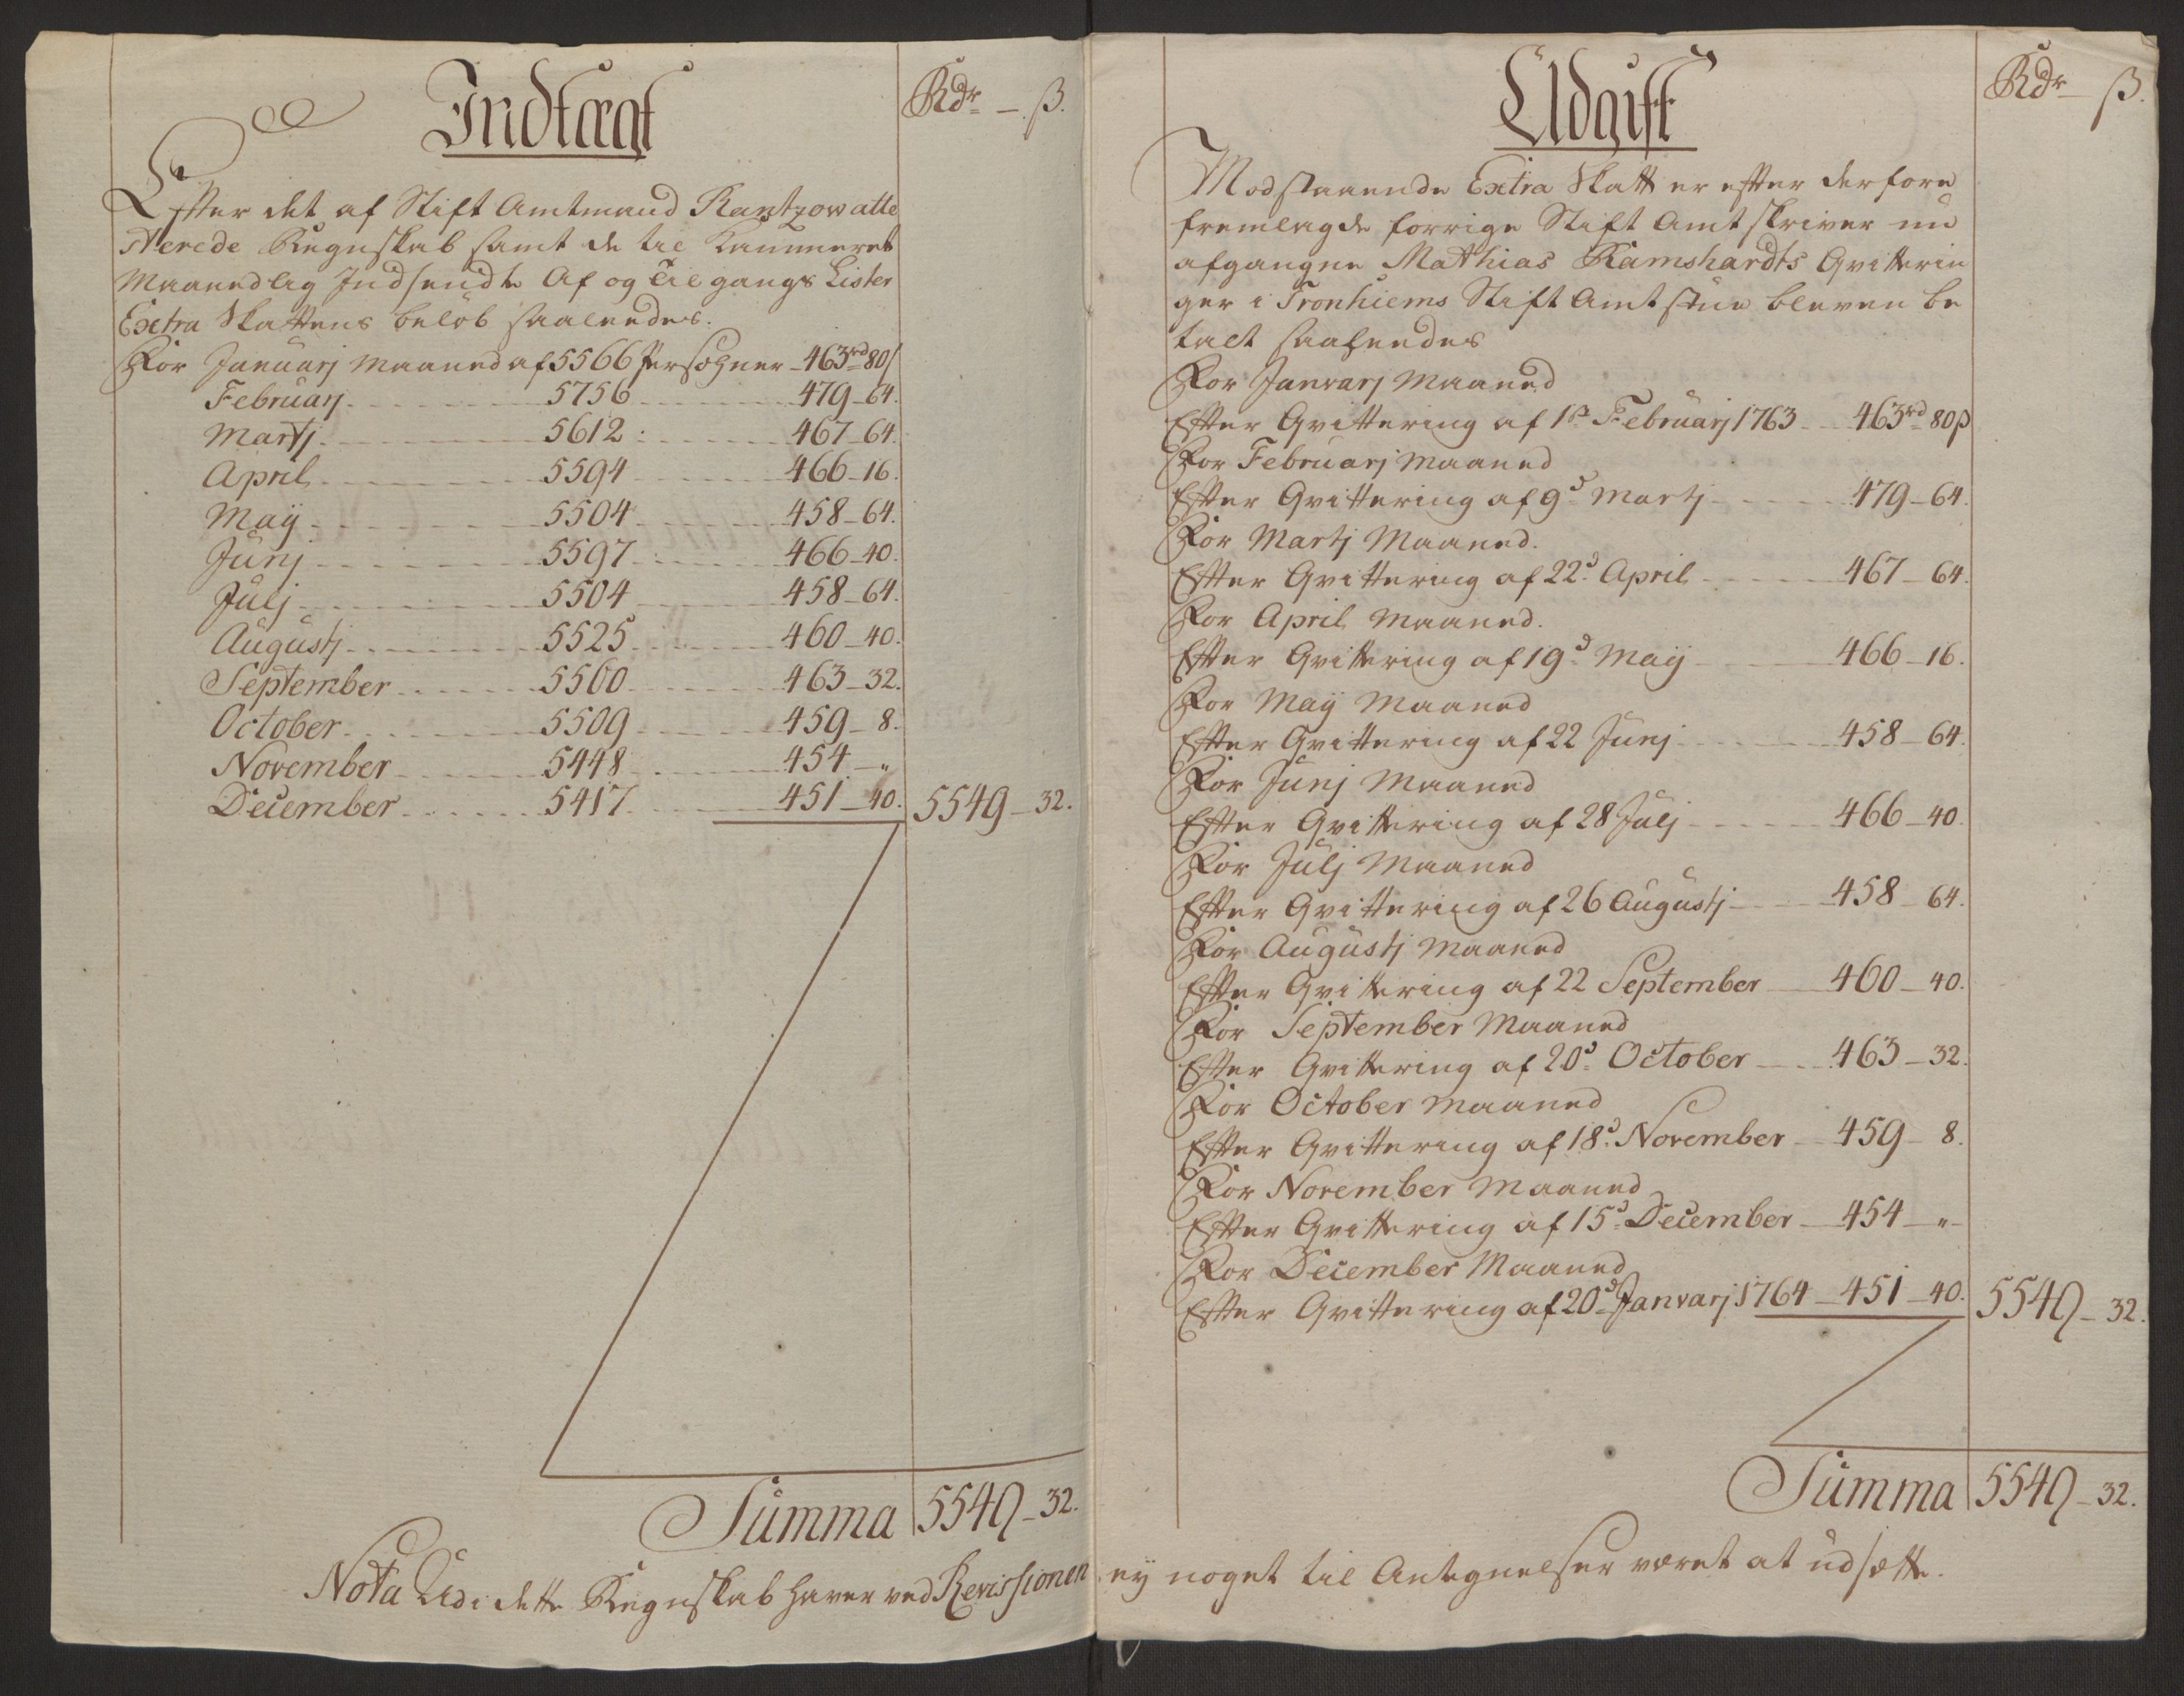 Indtægt
Rdr — ß.
Efter det af Stift Amtmand Rantzow atte
sterede Regnskab samt de til Kammeret
Maanedlig Indsendte Af og til gangs Lister
Extra Skattens beløb saaleedes.
For Januarj Maaned af 5566 Persohner - 463rd 80ß
Februarj - 5756 - 479 - 64.
Martj - 5612 : - 467 - 64.
April - 5594 - 466 - 16.
Maij - 5504 - 458 - 64.
Junj - 5597 - 466 - 40.
Julj - 5504 - 458 - 64.
Augustj - 5525 - 460 - 40.
September - 5560 - 463 - 32.
October - 5509 - 459 - 8.
November - 5448 - 454 - "
December - 5417 - 451 - 40. 5549 - 32.
Summa 5549 - 32.
Udgift
Rdr ß.
Modstaaende Extra Skatt er efter derfore
fremlagde forrige Stift Amtskriver nu
afgangne Mathias Ramshardts Qvitterin
ger i Tronhiems Stift Amtstue bleven be
talt saaleedes
For Janvarj Maaned
Efter Qvittering af 1ß Februarj 1763 - 463rd 80ß
For Februarj Maaned
Efter Qvittering af 9d Martj - 479 - 64.
For Martj Maaned.
Efter Qvittering af 22d April - 467 - 64.
For April Maaned.
Efter Qvittering af 19d Maij - 466 - 16.
For Maij Maaned
Efter Qvittering af 22 Junj - 458 - 64.
For Junj Maaned
Efter Qvittering af 28 Julj - 466 - 40.
For Julj Maaned
Efter Qvittering af 26 Augustj - 458 - 64.
For Augustj Maaned
Efter Qvittering af 22 September - 460 - 40.
For September Maaned
Efter Qvittering af 20d October - 463 - 32.
For October Maaned
Efter Qvittering af 18d November - 459 - 8.
For November Maaned
Efter Qvittering af 15d December - 454 - "
For December Maaned
Efter Qvittering af 20d Janvarj 1764 - 451 - 40. 5549 - 32.
Summa 5549 - 32.
Nota Udi dette Regnskab haver ved Revissionen ey noget til Antegnelser været at udsætte.